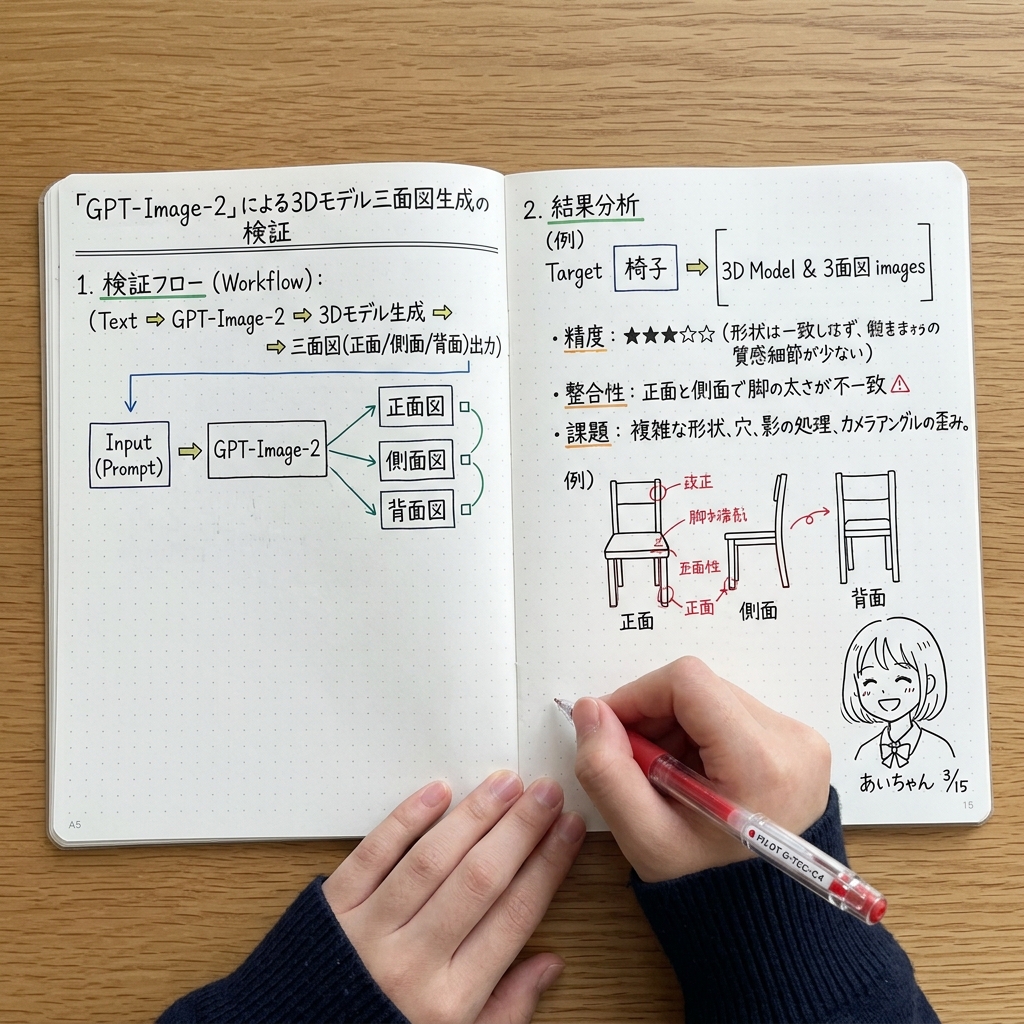 「GPT-Image-2」による3Dモデル三面図生成の
検証
1. 検証フロー (Workflow):
(Text ⇨ GPT-Image-2 ⇨ 3Dモデル生成 ⇨
⇨ 三面図(正面/側面/背面)出力)
Input
(Prompt)
GPT-Image-2
正面図
側面図
背面図
A5
2. 結果分析
(例)
Target 椅子 ⇨ 3D Model & 3面図 images
・精度: ★★★☆☆ (形状は一致
質感細節が少ない)
・整合性: 正面と側面で脚の太さが不一致 ⚠
・課題: 複雑な形状、穴、影の処理、カメラアングルの歪み。
例)
正面
正面
側面
背面
あいちゃん 3/15
15
PILOT G-TEC-C4